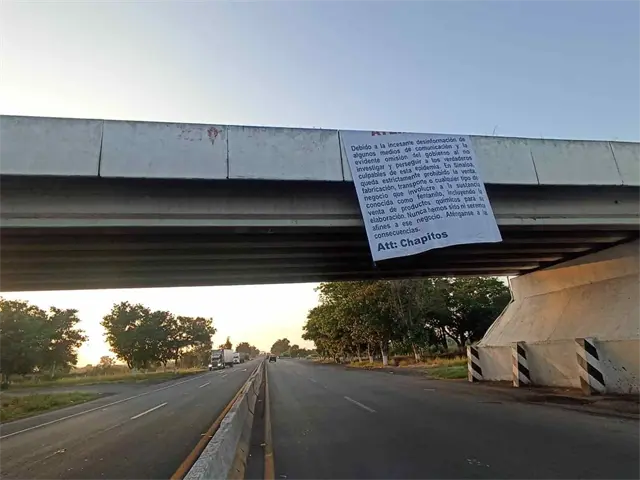 Debido a la incesante desinformación de
algunos medios de comunicación y la
evidente omisión del gobierno al no
investigar y perseguir a los verdaderos
culpables de esta epidemia. En Sinaloa,
queda estrictamente prohibido la venta,
fabricación, transporte o cualquier tipo de
negocio que involucre a la sustancia
conocida como fentanilo, incluyendo la
venta de productos químicos para su
elaboración. Nunca hemos sido ni seremos
afines a ese negocio. Aténganse a las
consecuencias.
Att: Chapitos